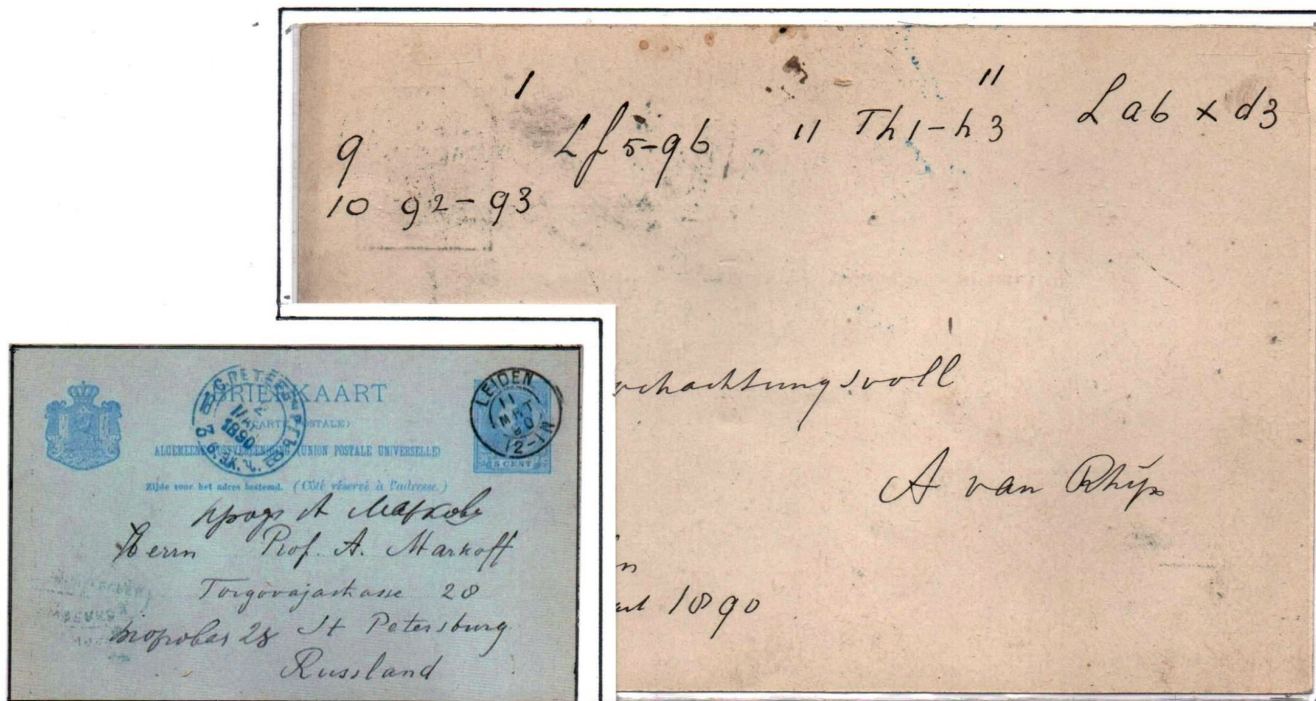 1 11
9 Lf5-g6 11 Th1-h3 La6 x d3
10 g2-g3
ochachtungsvoll
A van Rhijn
n
1890
BRIEFKAART
(CARTE POSTALE)
ALGEMEENE POSTVEREENIGING (UNION POSTALE UNIVERSELLE)
Zijde voor het adres bestemd. (Côté réservé à l'adresse.)
5 CENT
LEIDEN
11 MRT 90
12-1N
1890
Проф А Маркову
Herrn Prof. A. Markoff
Torgovajastrasse 28
28 St Petersburg
Russland